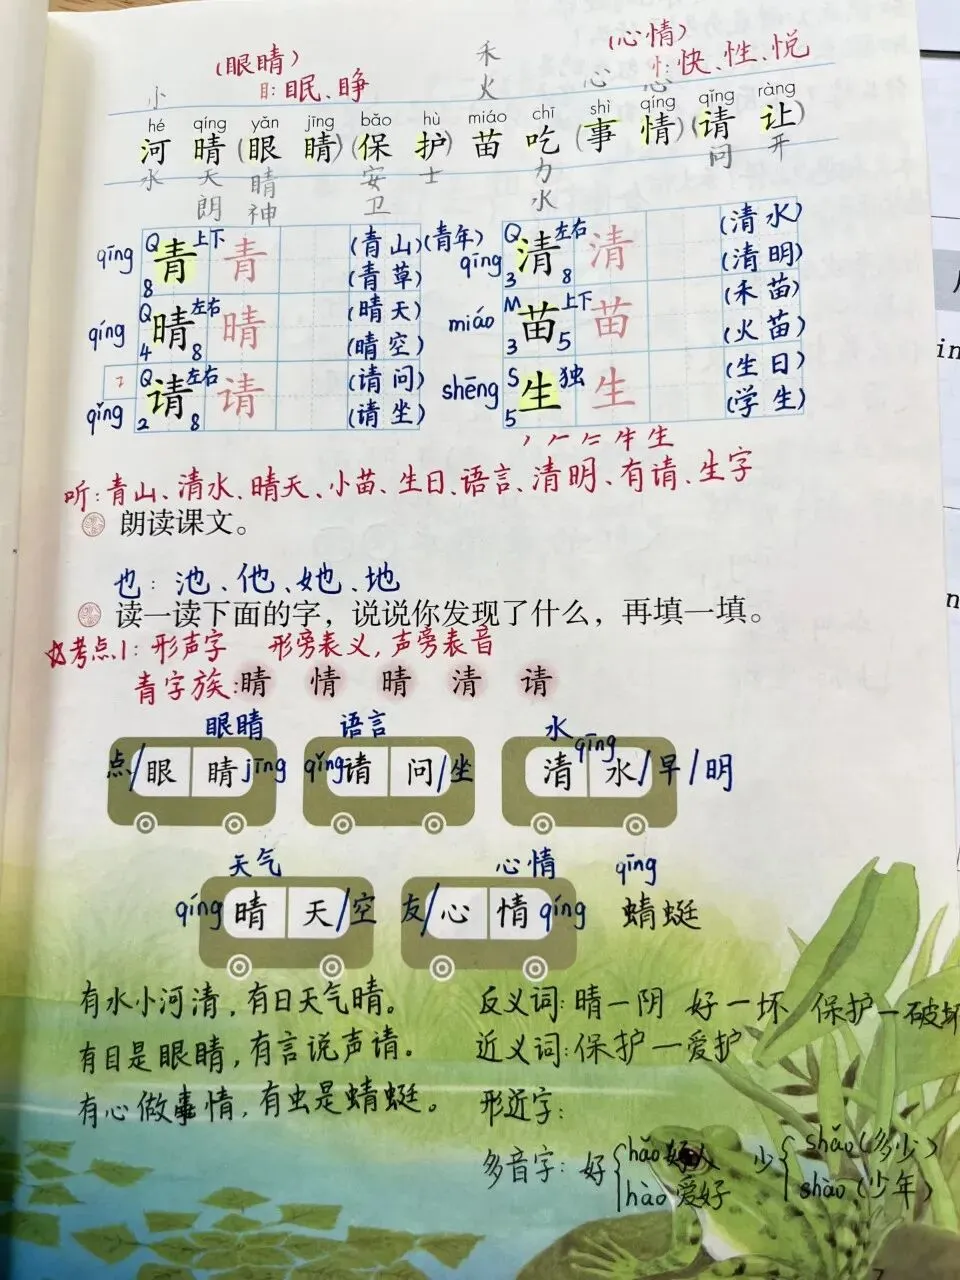 (眼睛) (心情)
目:眠、睁 忄:快、性、悦
小 禾 火 心
hé qíng yǎn jīng bǎo hù miáo chī shì qíng qǐng ràng
河 晴 (眼 睛) (保 护) 苗 吃 (事 情) (请 让)
水 天 朗 睛 神 安 卫 士 力 水 问 开
qīng Q 青 上下 8 青 (青山) (青年) (青草)
qīng Q 清 左右 3 8 清 (清水) (清明)
qíng Q 晴 左右 4 8 晴 (晴天) (晴空)
miáo M 苗 上下 3 5 苗 (禾苗) (火苗)
qǐng Q 请 左右 2 8 请 (请问) (请坐)
shēng S 生 独 5 生 (生日) (学生)
听:青山、清水、晴天、小苗、生日、语言、清明、有请、生字
朗读课文。
也:池、他、她、地
读一读下面的字，说说你发现了什么，再填一填。
考点1:形声字 形旁表义,声旁表音
青字族:睛 情 晴 清 请
眼睛 语言 水
点/眼 睛 jīng qǐng 请 问/坐 清 qīng 水/早/明
天气 心情 qīng
qíng 晴 天/空 友/心 情 qíng 蜻蜓
有水小河清,有日天气晴。 反义词:晴—阴 好—坏 保护—破坏
有目是眼睛,有言说声请。 近义词:保护—爱护
有心做事情,有虫是蜻蜓。 形近字:
多音字:好 hǎo 好人 hào 爱好 少 shǎo (多少) shào (少年)